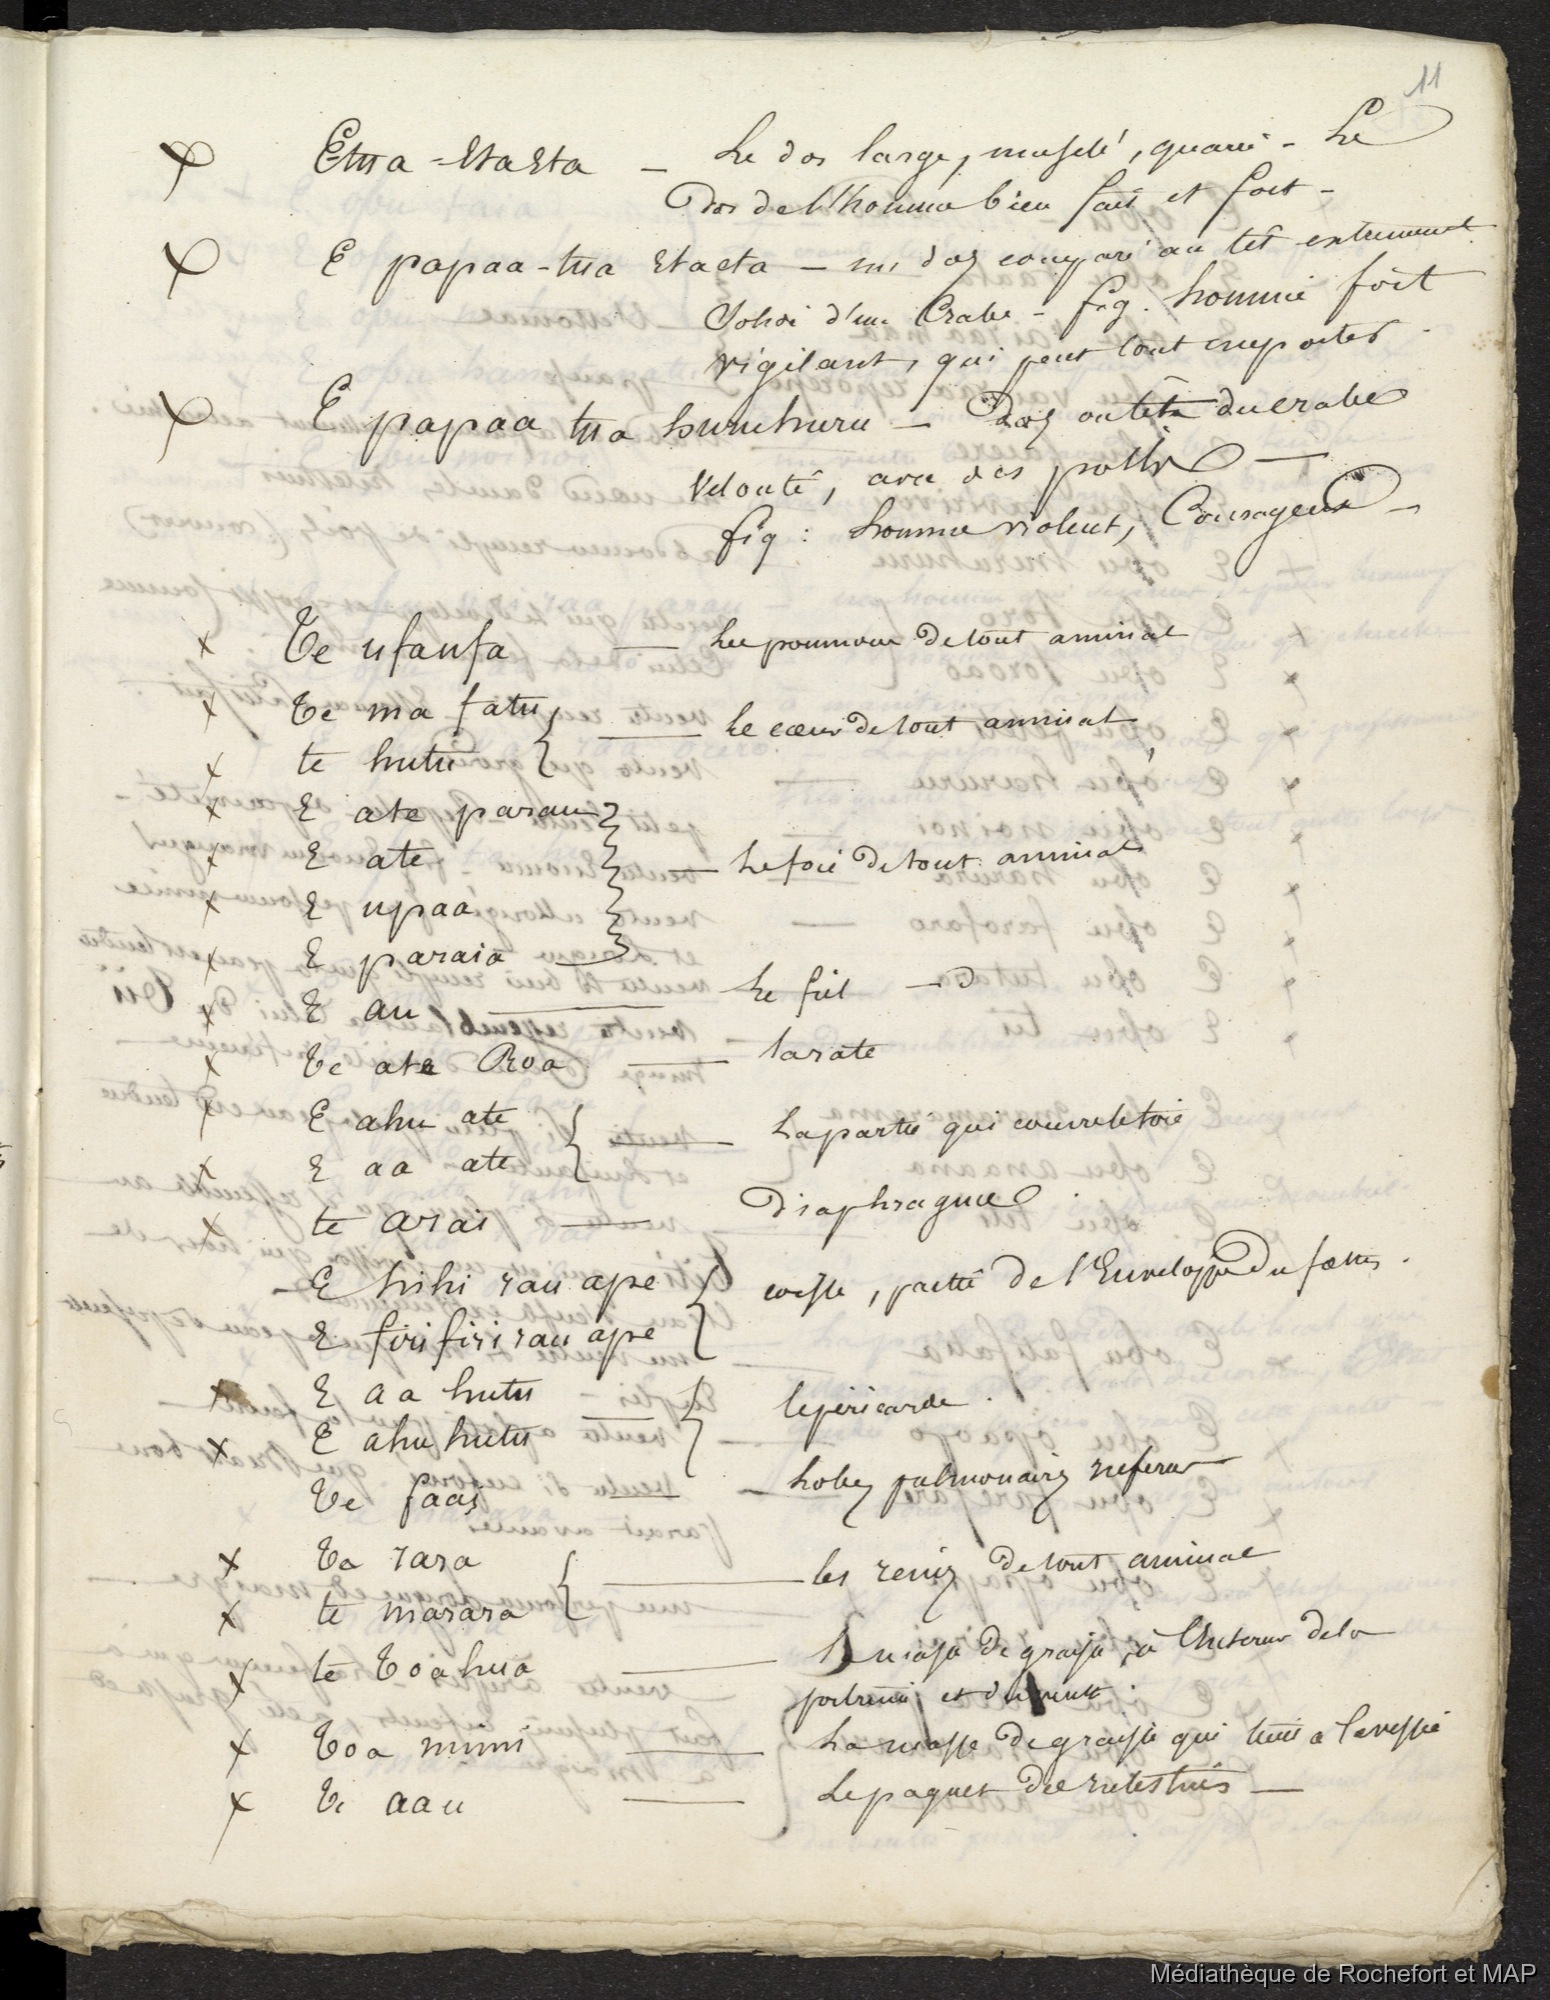 11
x Etua-etaeta — Le dos large, musclé, quarré - Le
Dos de l'homme bien fait et fort -
x E papaa-tua etaeta — un dos comparé au têt extrement
d'un Crabe - fig. homme fort
vigilant, qui peut tout emporter.
x E papaa tua huruhuru — Dos ou têt du crabe
Velouté, avec des poils —
fig : homme violent, Courageux —
x Te ufaufa — Les poumons de tout animal
x Te ma fatu } — Le cœur de tout animal
x te hutu
x E ate parau }
x E ate — Le foie de tout animal
x E upaa
x E paraia
x E au — Le fiel — d
x Te ate Roa — la rate
x E ahu ate { — La partie qui couvre le foie
x E aa ate
x te arai — Diaphragme
E hihi rau ape { coiffe, partie de l'Enveloppe du fœtus.
E firifiri rau ape
x E aa hutu — { le péricarde.
x E ahu hutu
Te faai — Lobes pulmonaires
x Te rara { — les reins de tout animal
x te marara
x te toahua — La masse de graisse, à l'interieur de la
poitrine et du ventre.
x Toa mimi — La masse de graisse qui tient a la vessie
x Te aau — Le paquet des intestins —
Médiathèque de Rochefort et MAP